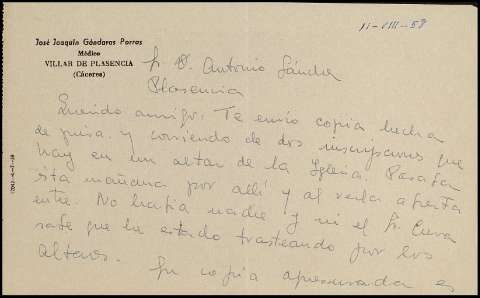 11-VIII-58
José Joaquín Gándaras Porras
Médico
VILLAR DE PLASENCIA
(Cáceres)
Sr. D. Antonio Sánchez
Plasencia
Querido amigo: Te envío copia hecha
de prisa y corriendo de dos inscripciones que
hay en un altar de la Iglesia. Pasaba
esta mañana por allí y al verla abierta
entré. No había nadie y ni el Sr. Cura
sabe que he estado trasteando por los
altares. La copia apresurada es